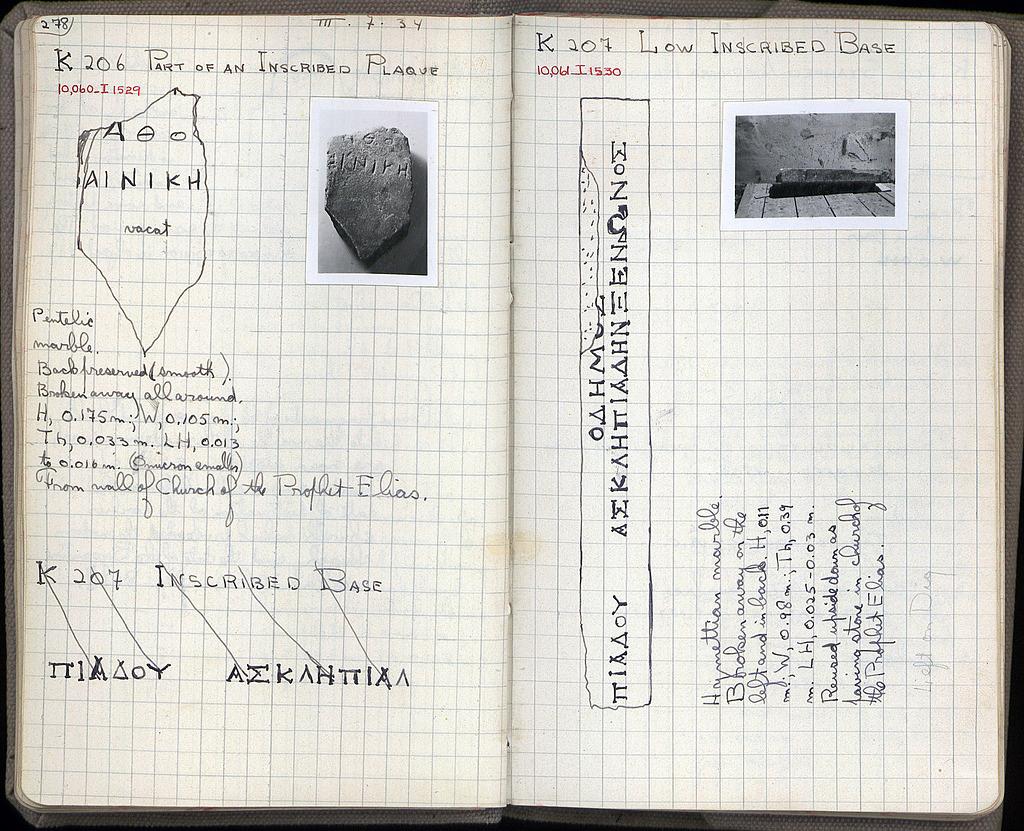 278
III . 7 . 34
K 206 PART OF AN INSCRIBED PLAQUE
10,060_I 1529
Α Θ Ο
ΑΙ Ν Ι Κ Η
vacat
Pentelic
marble.
Back preserved (smooth).
Broken away all around.
H, 0.175 m.; W, 0.105 m.;
Th, 0.033 m. LH, 0.013
to 0.016 m. (Omicron smaller)
From wall of Church of the Prophet Elias.
K 207 INSCRIBED BASE
ΠΙΑΔΟΥ ΑΣΚΛΗΠΙΑΛ
K 207 LOW INSCRIBED BASE
10,061_I 1530
ΟΔΗΜΟΣ
ΠΙΑΔΟΥ ΑΣΚΛΗΠΙΑΔΗΝΞΕΝΩΝΟΣ
Hymettian marble.
Broken away on the
left and in back. H, 0.11
m.; W, 0.98 m.; Th, 0.39
m. LH, 0.025-0.03 m.
Reused upside down as
paving stone in church of
the Prophet Elias.
Left on Dig